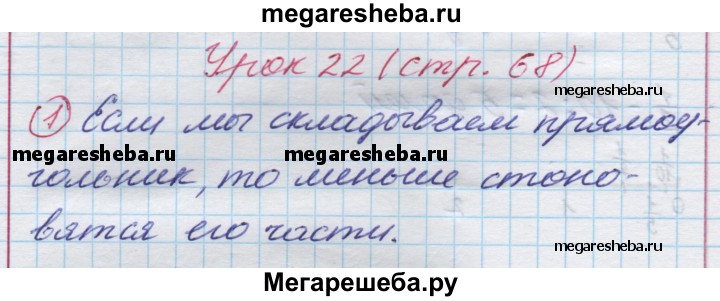 megaresheba.ru
Урок 22 (стр. 68)
megaresheba.ru
① Если мы складываем прямоу-
megaresheba.ru megaresheba.ru
гольник, то меньше стоно-
вятся его части.
megaresheba.ru
Мегарешеба.ру